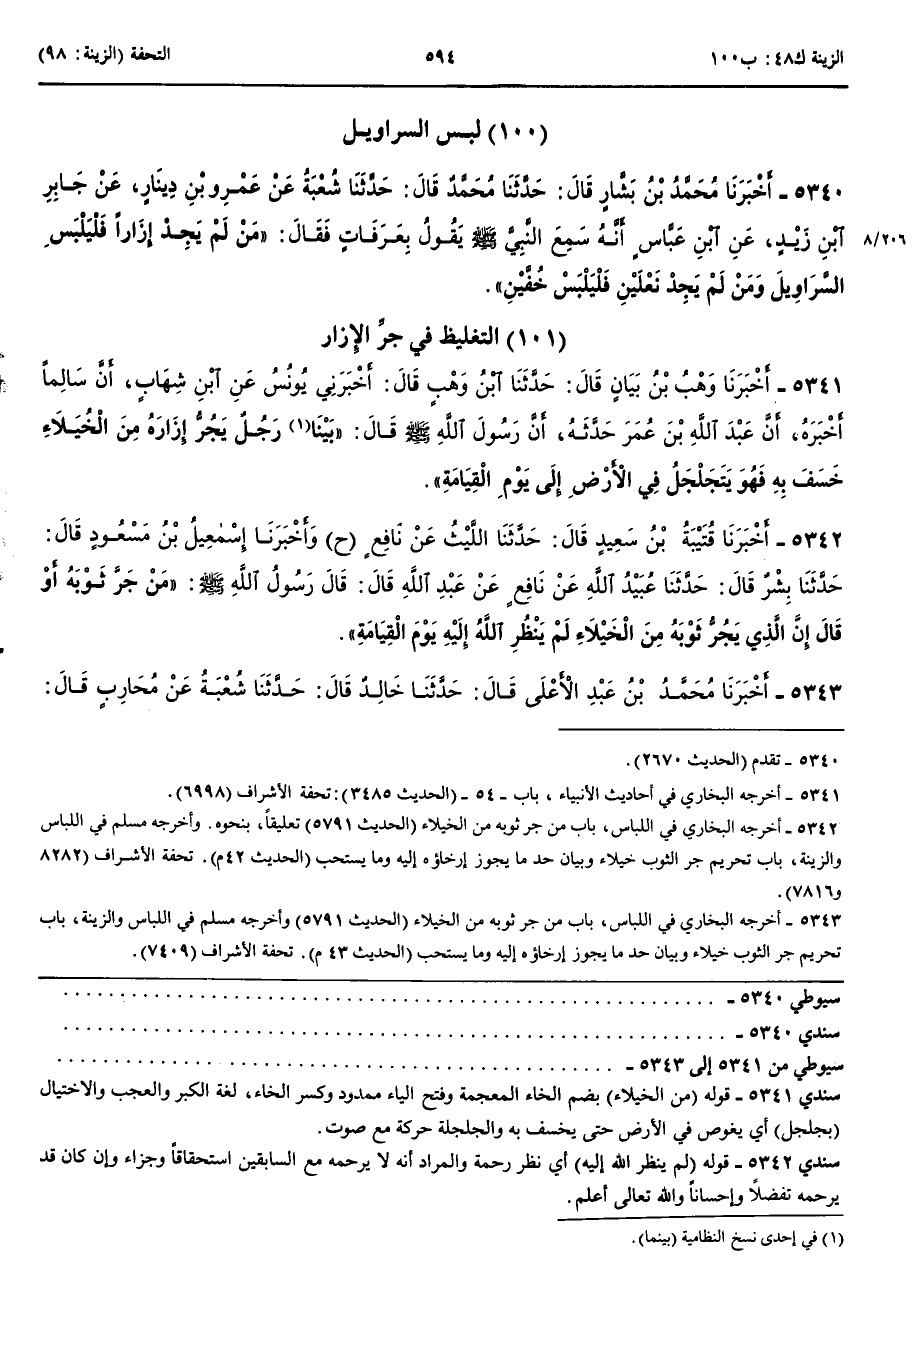 الزينة ك٤٨: ب١٠٠ ٥٩٤ التحفة (الزينة: ٩٨)
(١٠٠) لبس السراويل
٥٣٤٠ - أَخْبَرَنَا مُحَمَّدُ بْنُ بَشَّارٍ قَالَ: حَدَّثَنَا مُحَمَّدٌ قَالَ: حَدَّثَنَا شُعْبَةُ عَنْ عَمْرِو بْنِ دِينَارٍ، عَنْ جَابِرِ
٨/٢٠٦ ٱبْنِ زَيْدٍ، عَنِ ٱبْنِ عَبَّاسٍ أَنَّهُ سَمِعَ النَّبِيَّ ﷺ يَقُولُ بِعَرَفَاتٍ فَقَالَ: «مَنْ لَمْ يَجِدْ إِزَاراً فَلْيَلْبَسِ
السَّرَاوِيلَ وَمَنْ لَمْ يَجِدْ نَعْلَيْنِ فَلْيَلْبَسْ خُفَّيْنِ».
(١٠١) التغليظ في جرِّ الإِزار
٥٣٤١ - أَخْبَرَنَا وَهْبُ بْنُ بَيَانٍ قَالَ: حَدَّثَنَا ٱبْنُ وَهْبٍ قَالَ: أَخْبَرَنِي يُونُسُ عَنِ ٱبْنِ شِهَابٍ، أَنَّ سَالِماً
أَخْبَرَهُ، أَنَّ عَبْدَ ٱللَّهِ بْنَ عُمَرَ حَدَّثَهُ، أَنَّ رَسُولَ ٱللَّهِ ﷺ قَالَ: «بَيْنَا(١) رَجُلٌ يَجُرُّ إِزَارَهُ مِنَ الْخُيَلَاءِ
خَسَفَ بِهِ فَهُوَ يَتَجَلْجَلُ فِي الْأَرْضِ إِلَى يَوْمِ الْقِيَامَةِ».
٥٣٤٢ - أَخْبَرَنَا قُتَيْبَةُ بْنُ سَعِيدٍ قَالَ: حَدَّثَنَا اللَّيْثُ عَنْ نَافِعٍ (ح) وَأَخْبَرَنَا إِسْمٰعِيلُ بْنُ مَسْعُودٍ قَالَ:
حَدَّثَنَا بِشْرٌ قَالَ: حَدَّثَنَا عُبَيْدُ ٱللَّهِ عَنْ نَافِعٍ عَنْ عَبْدِ ٱللَّهِ قَالَ: قَالَ رَسُولُ ٱللَّهِ ﷺ: «مَنْ جَرَّ ثَوْبَهُ أَوْ
قَالَ إِنَّ الَّذِي يَجُرُّ ثَوْبَهُ مِنَ الْخَيْلَاءِ لَمْ يَنْظُرِ ٱللَّهُ إِلَيْهِ يَوْمَ الْقِيَامَةِ».
٥٣٤٣ - أَخْبَرَنَا مُحَمَّدُ بْنُ عَبْدِ الْأَعْلَى قَالَ: حَدَّثَنَا خَالِدٌ قَالَ: حَدَّثَنَا شُعْبَةُ عَنْ مُحَارِبٍ قَالَ:
٥٣٤٠ - تقدم (الحديث ٢٦٧٠).
٥٣٤١ - أخرجه البخاري في أحاديث الأنبياء ، باب - ٥٤ - (الحديث ٣٤٨٥): تحفة الأشراف (٦٩٩٨).
٥٣٤٢ - أخرجه البخاري في اللباس، باب من جر ثوبه من الخيلاء (الحديث ٥٧٩١) تعليقاً، بنحوه. وأخرجه مسلم في اللباس
والزينة، باب تحريم جر الثوب خيلاء وبيان حد ما يجوز إرخاؤه إليه وما يستحب (الحديث ٤٢م). تحفة الأشراف (٨٢٨٢
و٧٨١٦).
٥٣٤٣ - أخرجه البخاري في اللباس، باب من جر ثوبه من الخيلاء (الحديث ٥٧٩١) وأخرجه مسلم في اللباس والزينة، باب
تحريم جر الثوب خيلاء وبيان حد ما يجوز إرخاؤه إليه وما يستحب (الحديث ٤٣ م). تحفة الأشراف (٧٤٠٩).
سيوطي ٥٣٤٠ - . . . . . . . . . . . . . . . . . . . .
سندي ٥٣٤٠ - . . . . . . . . . . . . . . . . . . . .
سيوطي من ٥٣٤١ إلى ٥٣٤٣ - . . . . . . . . . . . . . . . . . . . .
سندي ٥٣٤١ - قوله (من الخيلاء) بضم الخاء المعجمة وفتح الياء ممدود وكسر الخاء، لغة الكبر والعجب والاختيال
(بجلجل) أي يغوص في الأرض حتى يخسف به والجلجلة حركة مع صوت.
سندي ٥٣٤٢ - قوله (لم ينظر الله إليه) أي نظر رحمة والمراد أنه لا يرحمه مع السابقين استحقاقاً وجزاء وإن كان قد
يرحمه تفضلاً وإحساناً والله تعالى أعلم.
(١) في إحدى نسخ النظامية (بينما).